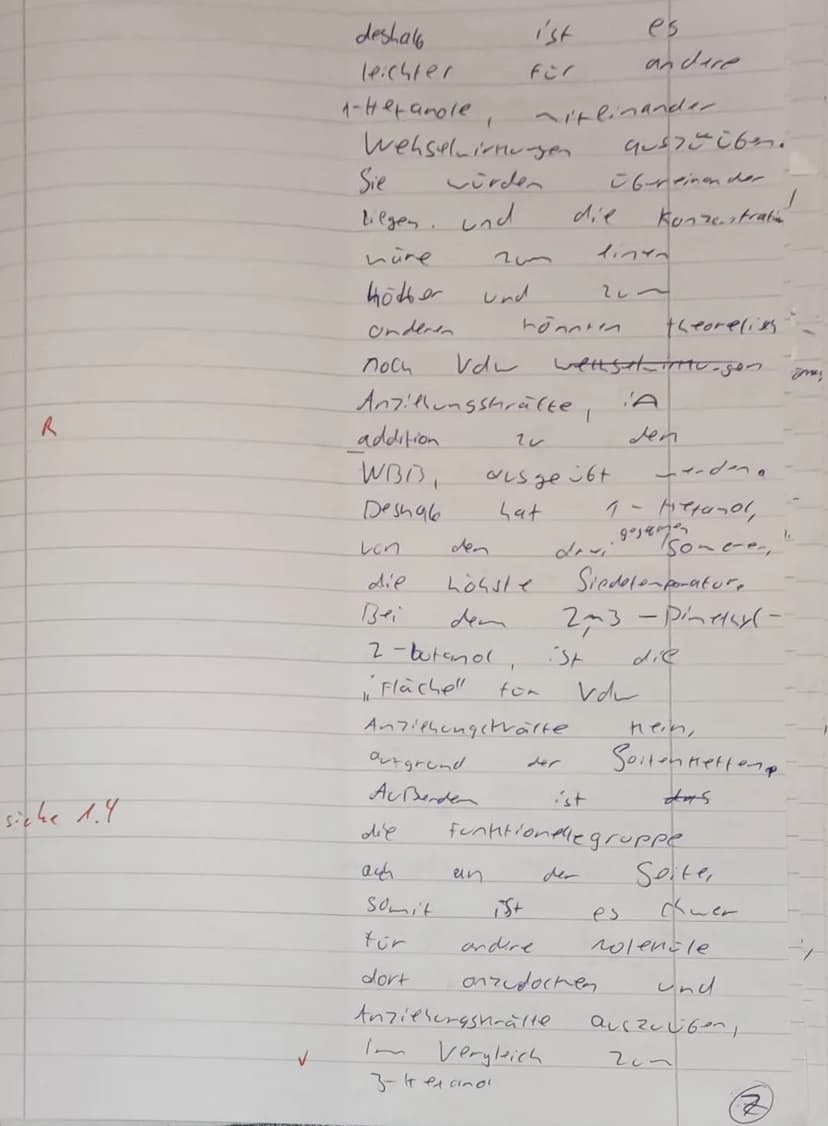 deshalb ist es
leichter für andere
1-Hexanole, miteinander
Wehselwirkungen auszuüben.
Sie würden übereinander
liegen. und die Konzentration
wäre zum einen
höher und zum
anderen könnten theoretisch
noch VdW Wechselwirkungen
Anziehungskräfte, iA
R
addition zu den
WBB, ausgeübt werden.
Deshalb hat 1-Hexanol,
gezeigten
von den drei Isomeren,
die höchste Siedetemperatur.
Bei dem 2,3-Dimethyl-
2-butanol, ist die
„Fläche" für VdW
Anziehungskräfte klein,
aufgrund der Seitenketten.
Außerdem ist das
siehe 1.4
die funktionellegruppe
ach an der Seite,
somit ist es schwer
für andere Moleküle
dort anzudocken und
Anziehungskräfte auszuüben,
im Vergleich zum
✓
3-Hexanol
7